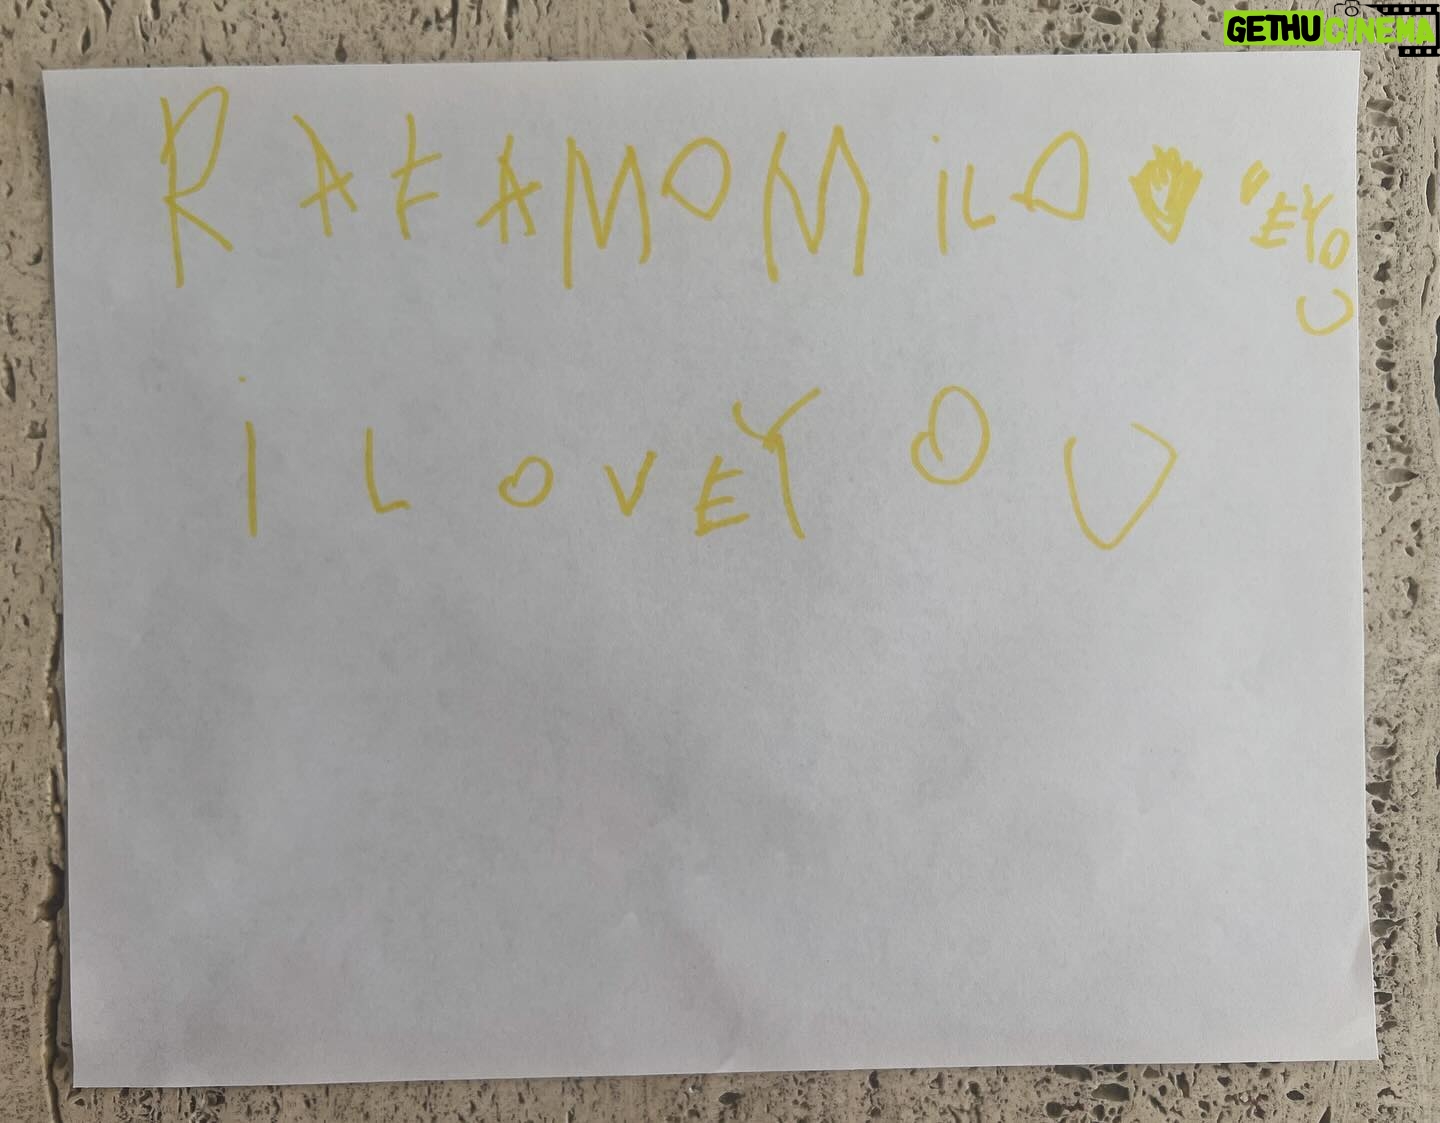 GETHU CINEMA
RAFAMOMILO "EYO
U
i L O V E Y O U